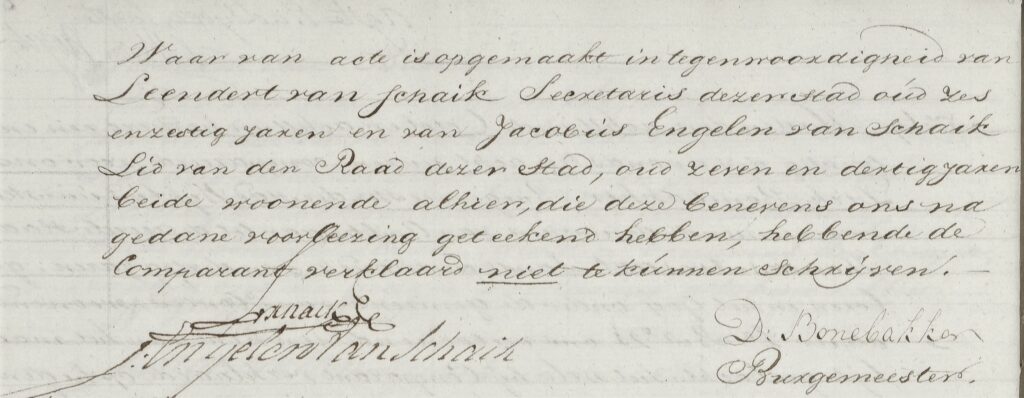 Waar van acte is opgemaakt in tegenwoordigheid van
Leendert van Schaik Secretaris dezer stad oúd zes
en zestig jaren en van Jacobús Engelen van Schaik
Lid van den Raad dezer Stad, oud zeven en dertig jaren
beide woonende alhier, die deze benevens ons na
gedane voorleezing geteekend hebben, hebbende de
Comparant verklaard niet te kúnnen schrijven.
J. Engelen van Schaik
D. Bonebakker
Burgemeester.